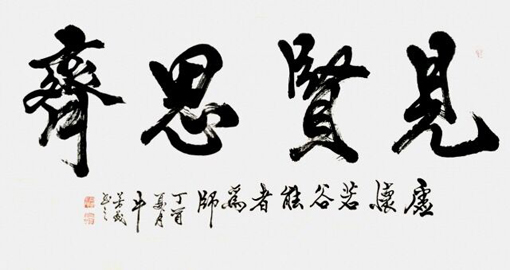 見賢思齊
虛懷若谷能者爲師
丁酉
夏月
牛